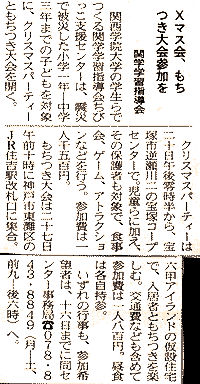 Xマス会、もち
つき大会参加を
関学学習指導会
関西学院大学の学生らで
つくる関学学習指導会ちび
っこ支援センターは、震災
で被災した小学一年―中学
三年までの子どもを対象
に、クリスマスパーティー
ともちつき大会を開く。
クリスマスパーティーは
二十日午後零時半から、宝
塚市逆瀬川二の宝塚コープ
センターで。児童らに加え、
その保護者も対象で、食事
会、ゲーム、アトラクショ
ンなどを行う。参加費は一
人千五百円。
もちつき大会は二十七日
午前十時に神戸市東灘区の
JR住吉駅改札口に集合。
六甲アイランドの仮設住宅
で、入居者ともちつきを楽
しむ。交通費なども含めて
参加費は一人八百円。昼食
は各自持参。
いずれの行事も、参加希
望者は、十六日までに同セ
ンター事務局☎078・8
43・8849(月―土、
前―後六時)へ。